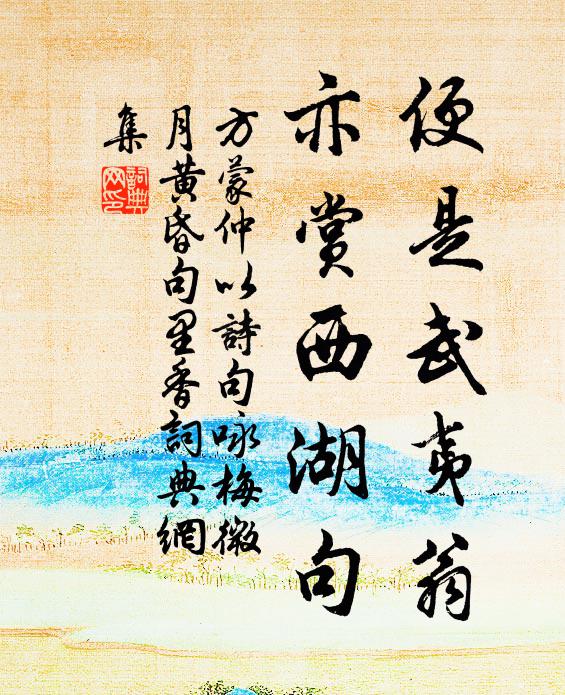 便是武夷翁
亦赏西湖句
方蒙仲以詩句咏梅微
月黄昏句里香詞典網
集
詞典網印